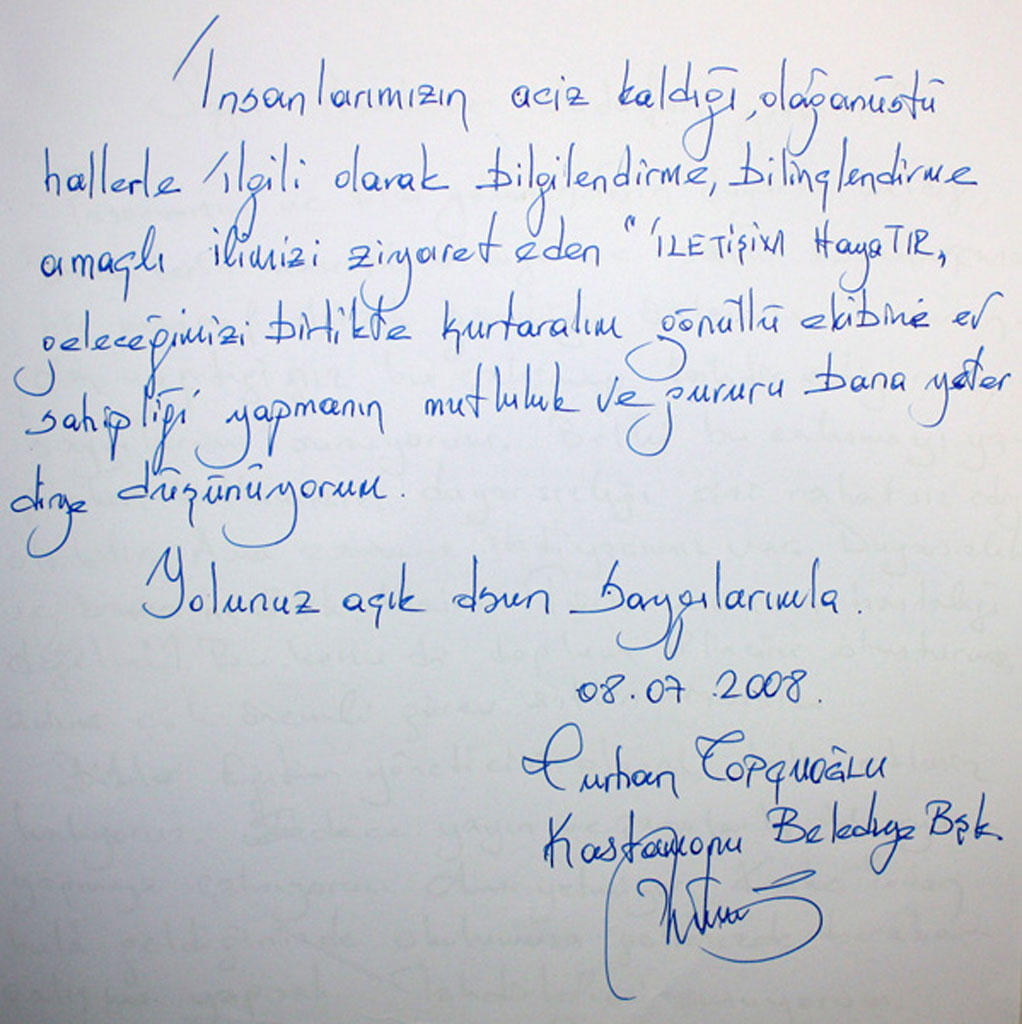 İnsanlarımızın aciz kaldığı, olağanüstü
hallerle ilgili olarak bilgilendirme, bilinçlendirme
amaçlı ilimizi ziyaret eden "İLETİŞİM HayaTIR,
geleceğimizi birlikte kurtaralım gönüllü ekibine ev
sahipliği yapmanın mutluluk ve gururu bana yeter
diye düşünüyorum.
Yolunuz açık olsun Saygılarımla.
08.07.2008.
Turhan TOPÇUOĞLU
Kastamonu Belediye Bşk.